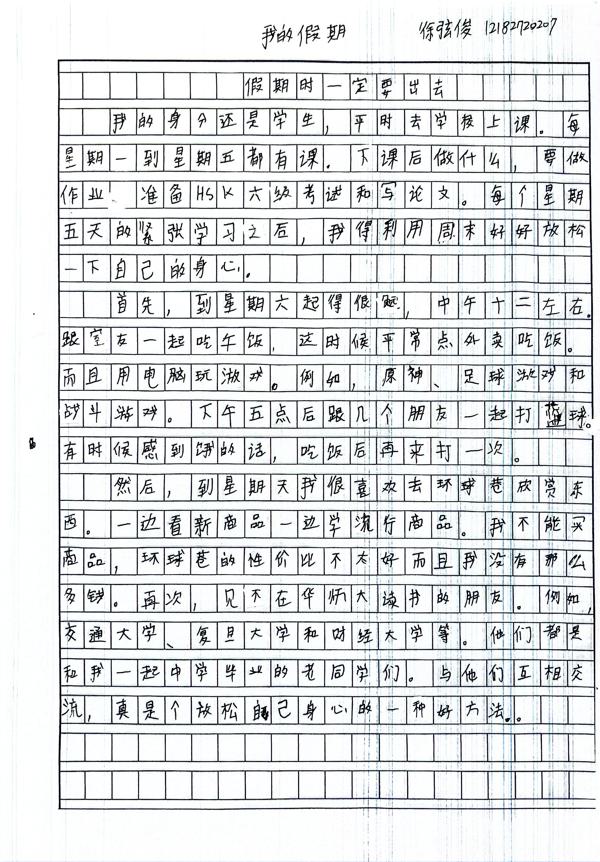 我的假期 徐弦俊 12182720207
假期时一定要出去
我的身分还是学生，平时去学校上课。每
星期一到星期五都有课．下课后做什么，要做
作业、准备HSK六级考试和写论文。每个星期
五天的紧张学习之后，我得利用周末好好放松
一下自己的身心。
首先，到星期六起得很晚，中午十二左右．
跟室友一起吃午饭，这时候平常点外卖吃饭。
而且用电脑玩游戏。例如，原神、足球游戏和
战斗游戏。下午五点后跟几个朋友一起打篮球。
有时候感到饿的话，吃饭后再来打一次。
然后，到星期天我很喜欢去环球巷欣赏东
西。一边看新商品一边学流行商品。我不能买
商品，环球巷的性价比不太好而且我没有那么
多钱。再次，见不在华师大读书的朋友。例如，
交通大学、复旦大学和财经大学等。他们都是
和我一起中学毕业的老同学们。与他们互相交
流，真是个放松自己身心的一种好方法。